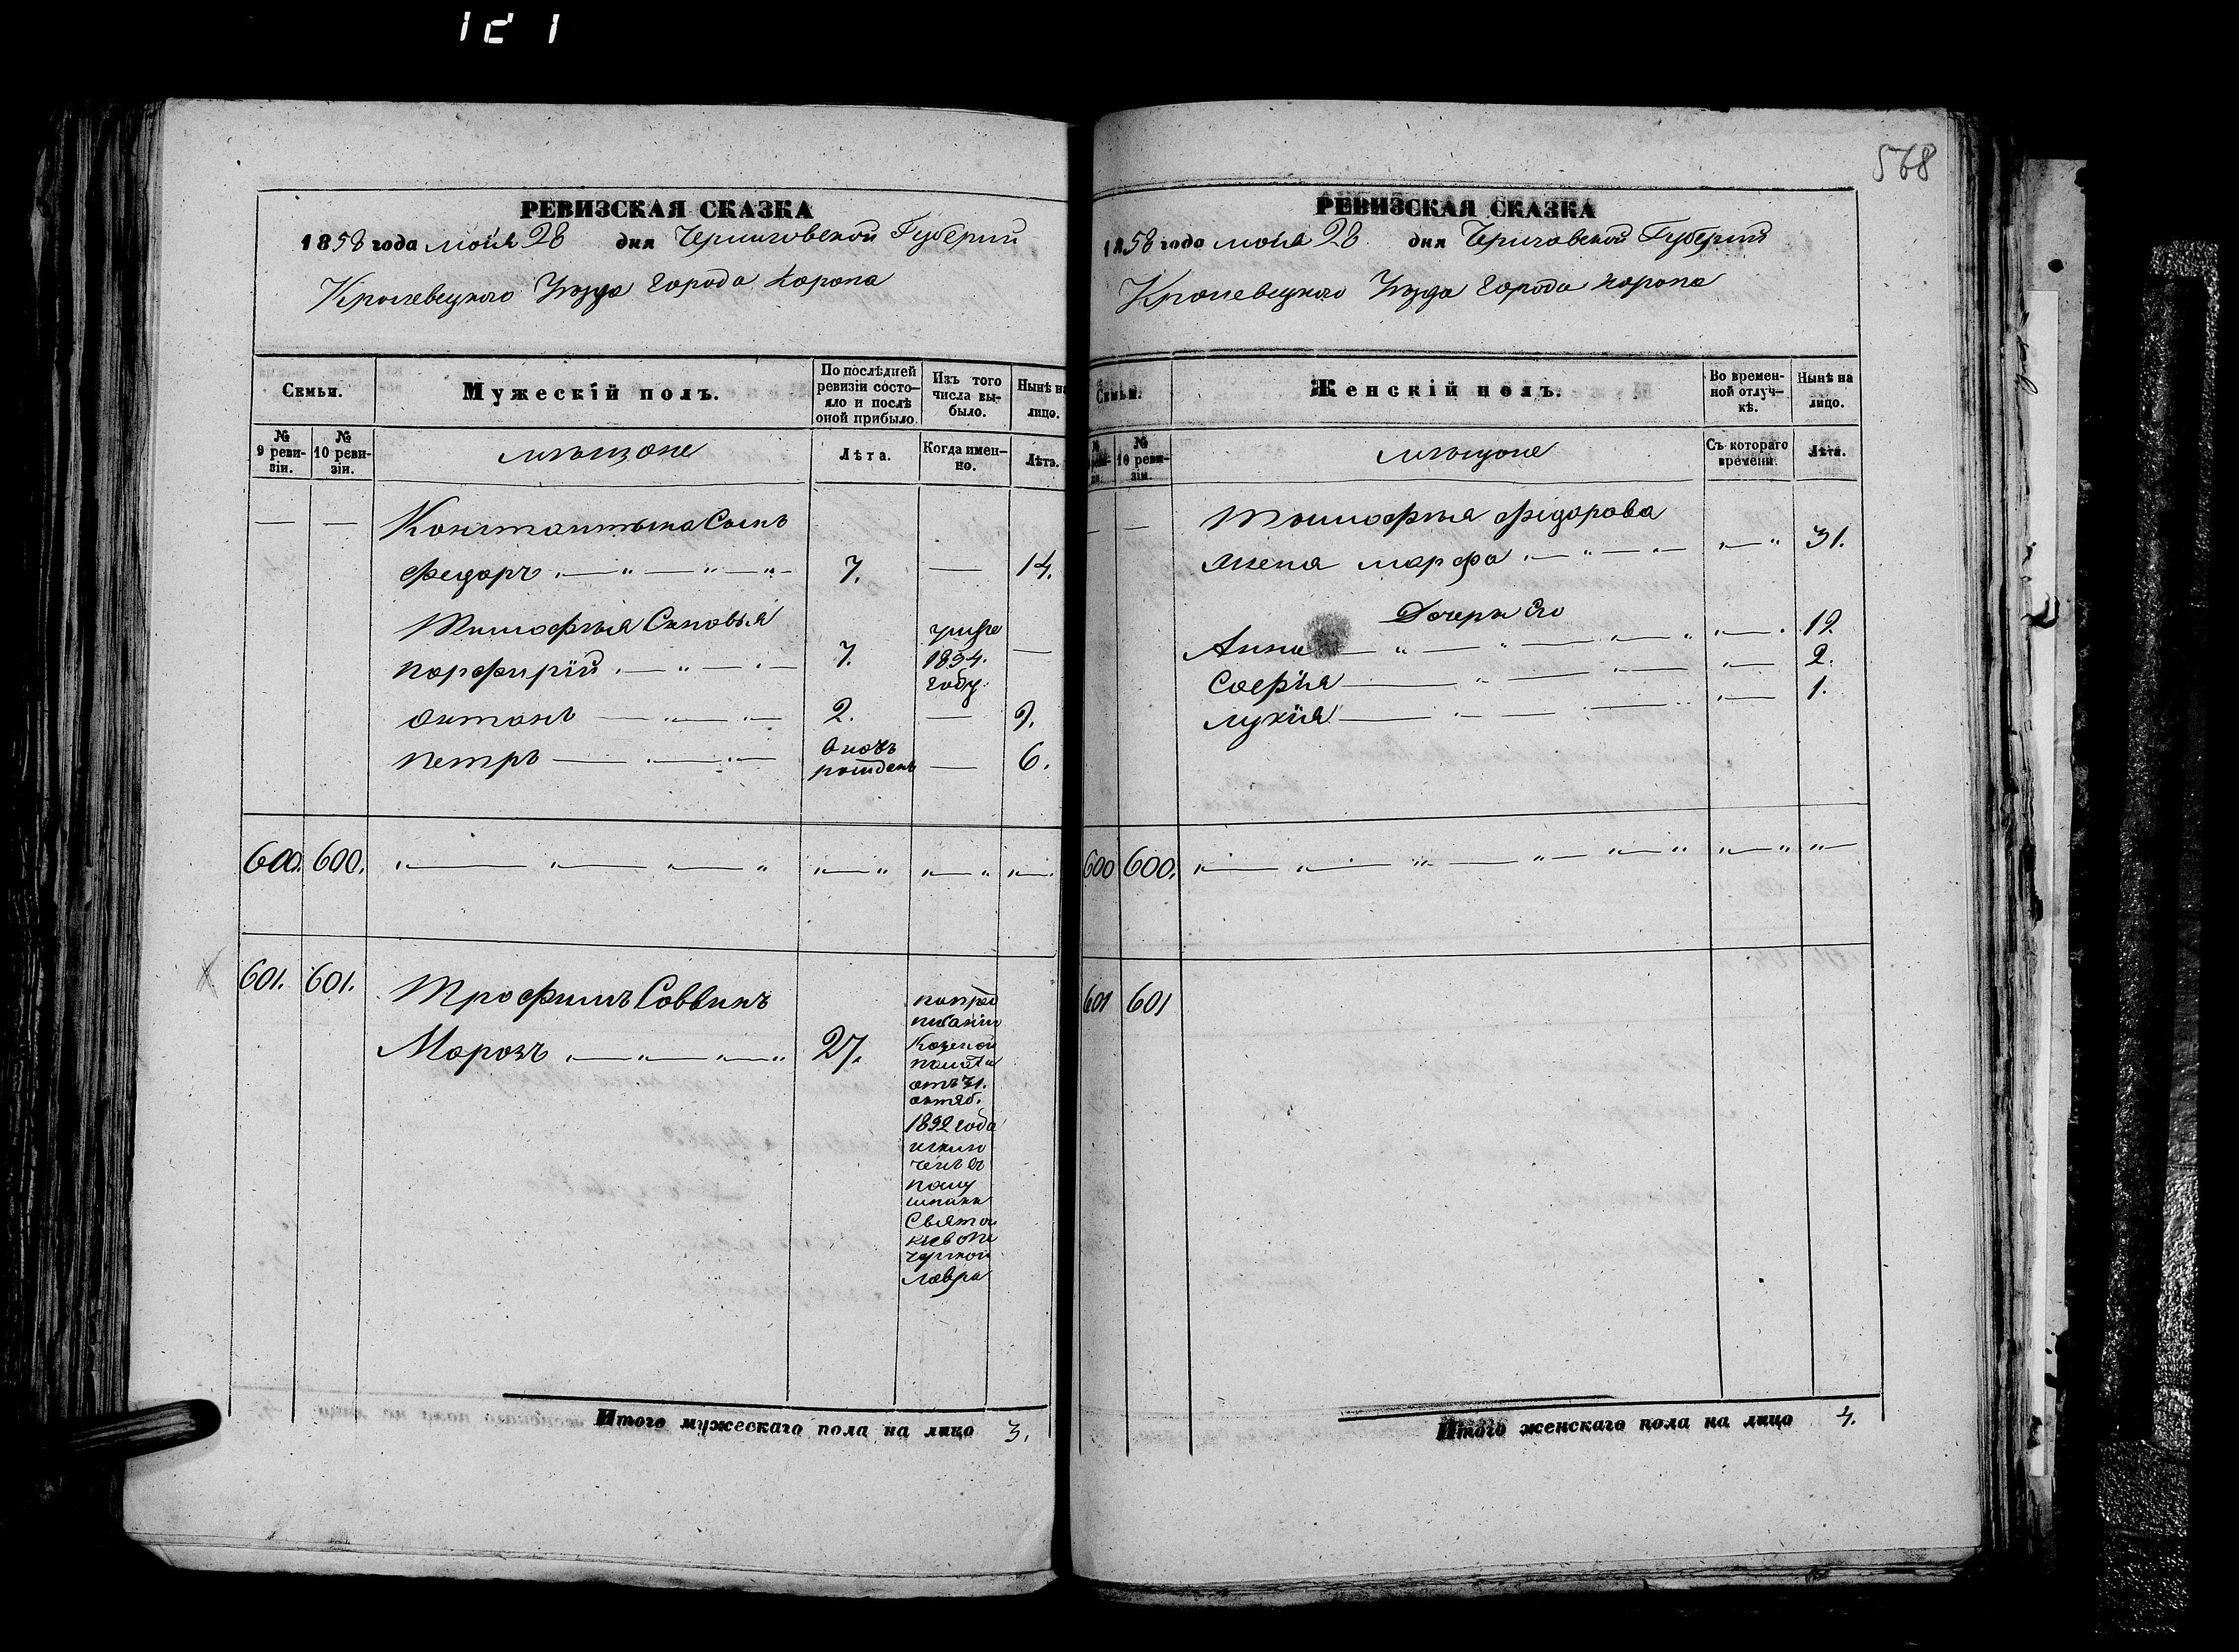 121
568
РЕВИЗСКАЯ СКАЗКА
1858 года мая 28 дня Черниговской Губернии
Кролевецкого Уезда города Коропа
Семьи.
Мужескій полъ.
По послѣдней ревизіи состояло и послѣ оной прибыло
Изъ того числа выбыло.
Нынѣ на лицо.
№ 9 ревизіи.
№ 10 ревизіи.
мѣщане
Лѣта.
Когда именно.
Лѣта.
— — Константина Сынъ
Федоръ 7. — 14.
Тимофѣя Сыновья
Порфирій 7. умре 1854. году —
Антонъ 2. — 9.
Петръ вновь рожденъ — 6.
600. 600.
601. 601. Трофимъ Саввинъ
Морозъ 27.
по пред
писанію
Казеной
палаты
отъ 31.
октяб.
1852 года
исклю
ченъ въ
послу
шники
Святой
Киевопе
черской
Лавры
Итого мужескаго пола на лицо 3.
РЕВИЗСКАЯ СКАЗКА
1858 года мая 28 дня Черниговской Губернии
Кролевецкого Уезда города Коропа
Семьи.
Женскій полъ.
Во временной отлучкѣ.
Нынѣ на лицо.
№ 10 ревизіи.
мѣщане
Съ котораго времени.
Лѣта.
— — Тимофѣя Федорова
жена Марфа 31.
Дочери его
Анна 12.
Софія 2.
Лукія 1.
600 600.
601 601
Итого женскаго пола на лицо 4.